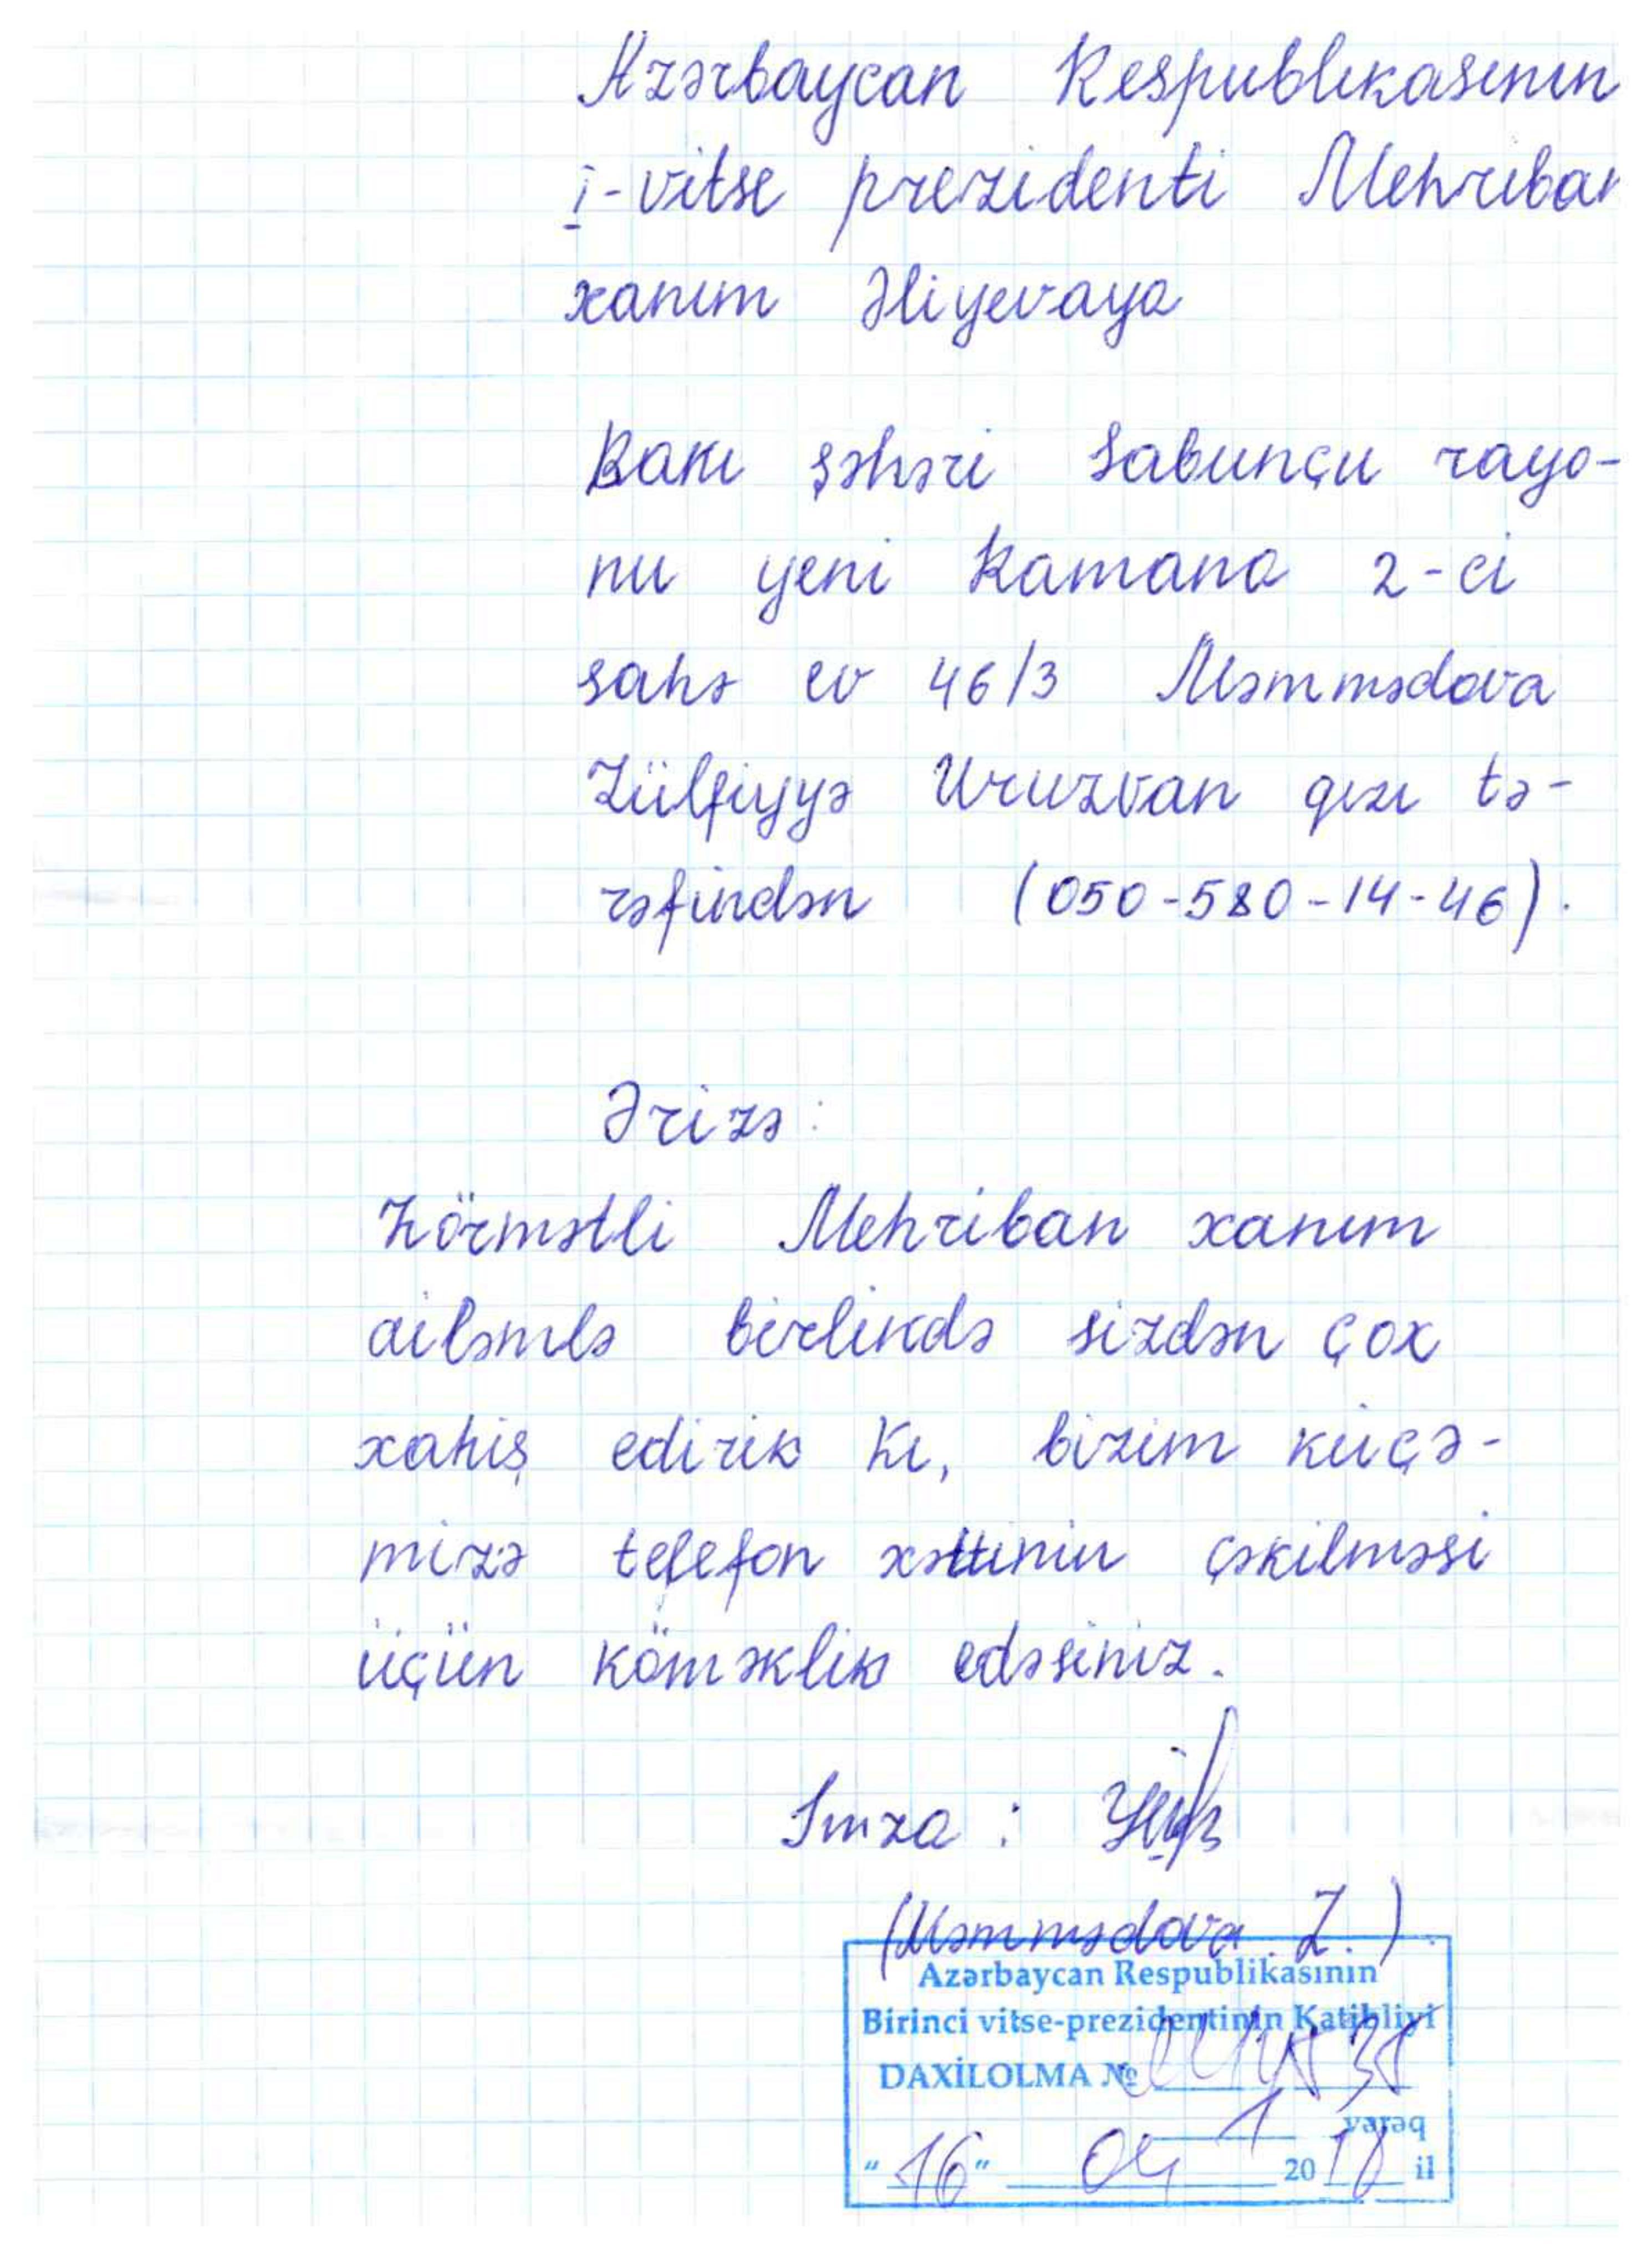 Azərbaycan Respublikasının
I-vitse prezidenti Mehriban
xanım Əliyevaya
Bakı şəhəri Sabunçu rayo-
nu yeni Ramana 2-ci
sahə ev 46/3 Məmmədova
Zülfiyyə Uruzvan qızı tə-
rəfindən (050-580-14-46).
Ərizə:
Hörmətli Mehriban xanım
ailəmlə birlikdə sizdən çox
xahiş edirik ki, bizim küçə-
mizə telefon xəttinin çəkilməsi
üçün köməklik edəsiniz.
İmza:
(Məmmədova Z.)
Azərbaycan Respublikasının
Birinci vitse-prezidentinin Katibliyi
DAXİLOLMA №
1 vərəq
"16" 04 2018 il